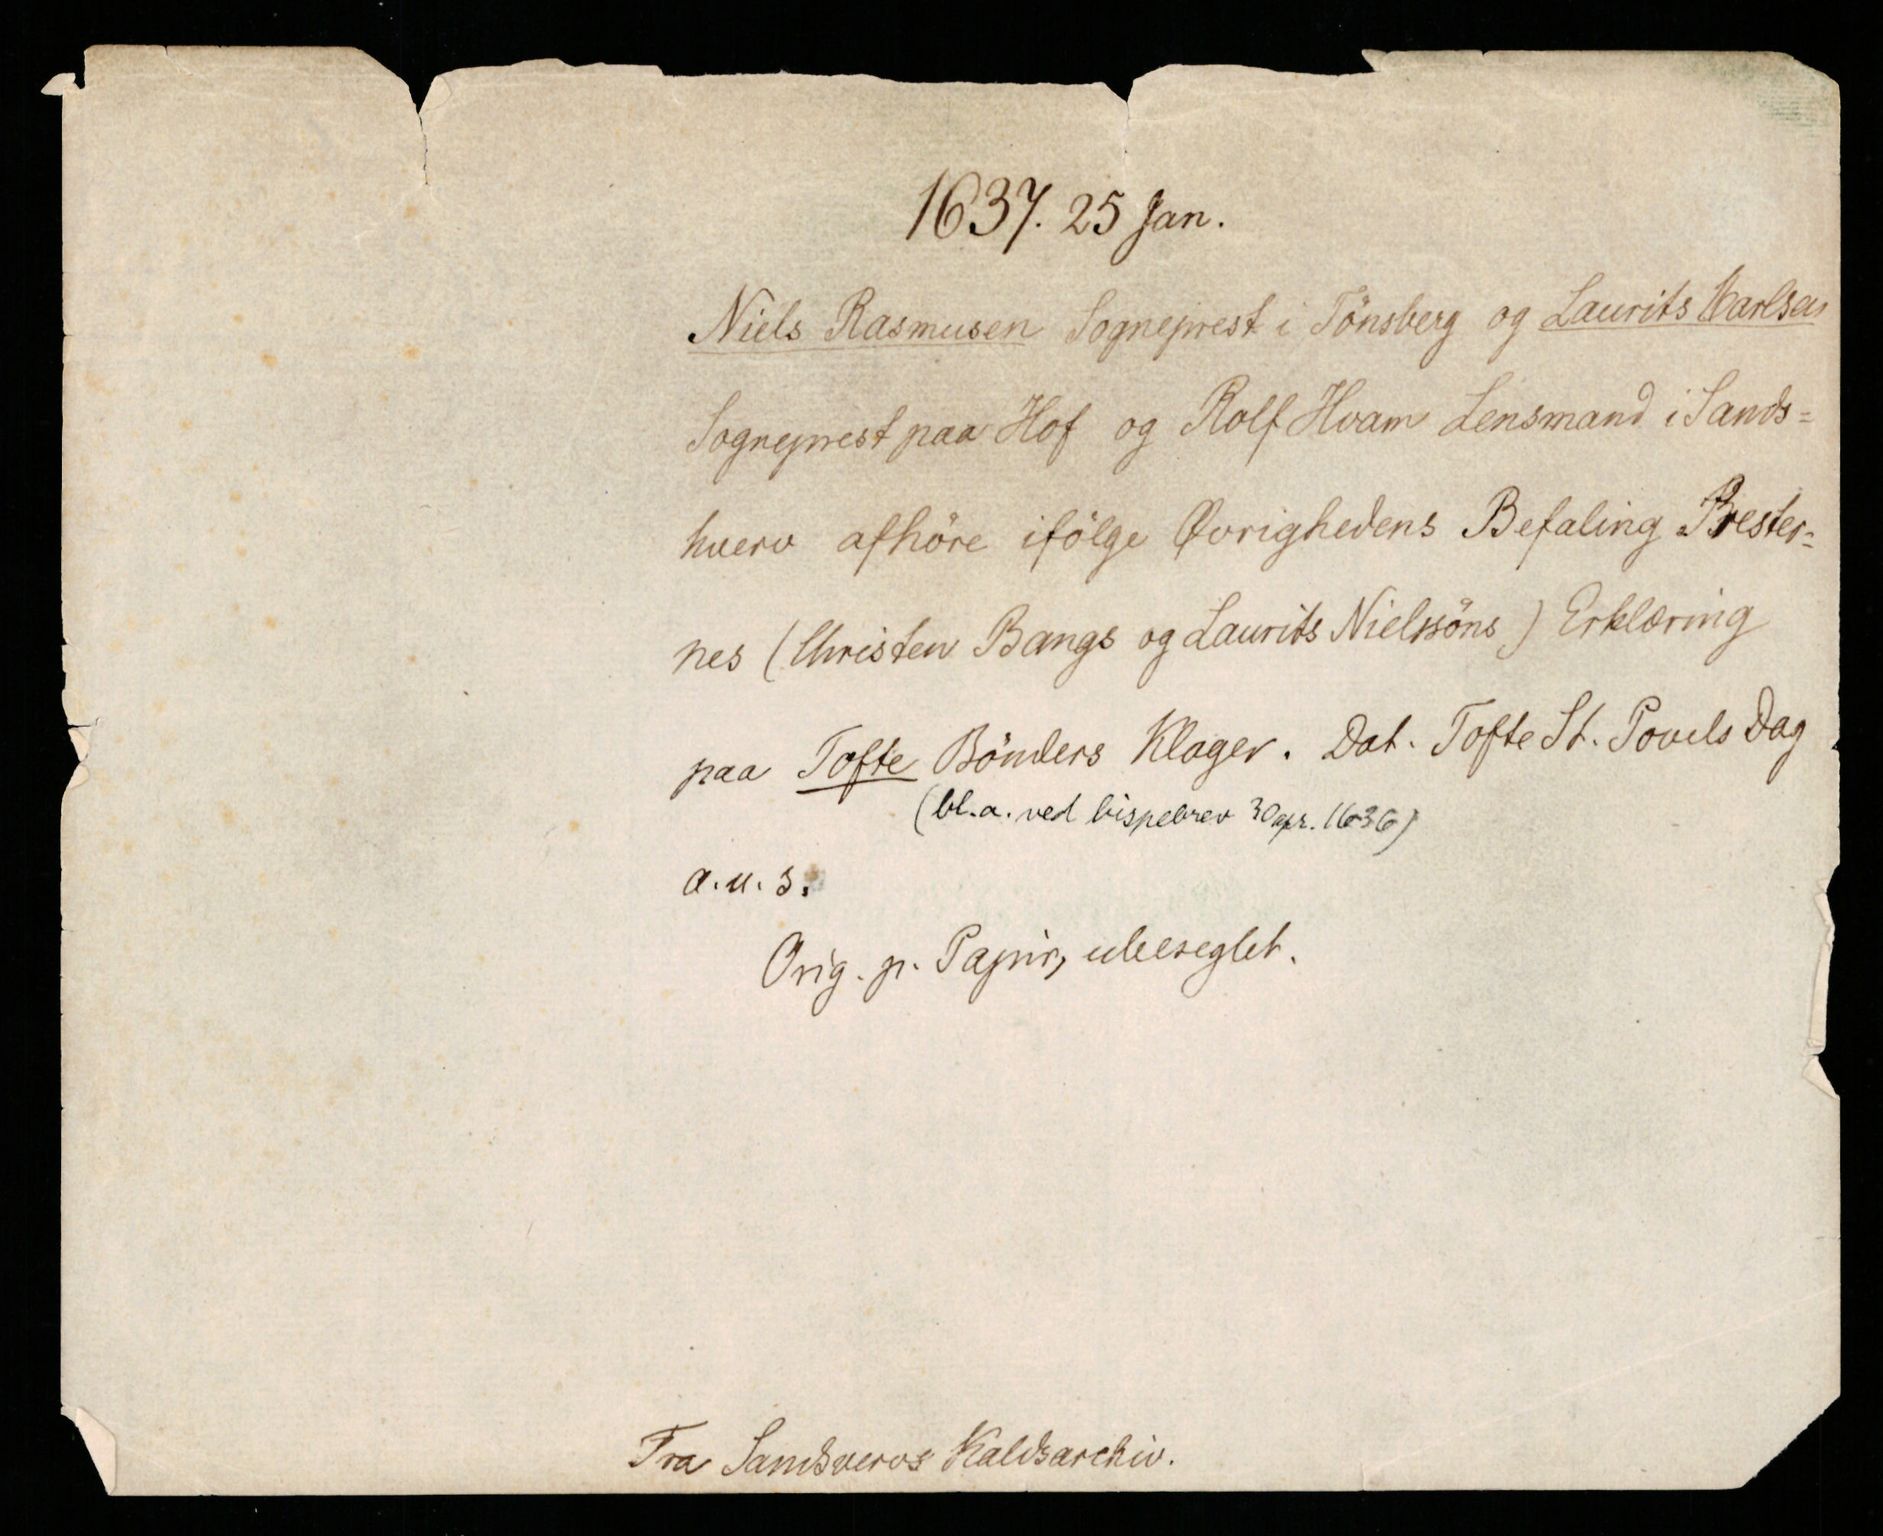 1637. 25 Jan.
Niels Rasmusen Sogneprest i Tönsberg og Laurits Karlsen
Sogneprest paa Hof og Rolf Hvam Lensmand i Sands=
hverv afhöre ifölge Øvrighedens Befaling Prester=
nes (Christen Bangs og Laurits Nielssöns) Erklæring
paa Tofte Bönders Klager. Dat. Tofte St. Povels Dag
(bl.a. ved bispebrev 30 apr. 1636)
a. u. s.
Orig. p. Papir, ubeseglet.
Fra Sandsvervs Kaldsarchiv.